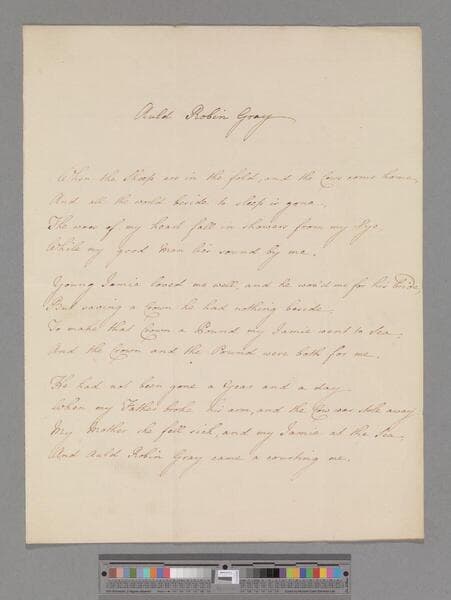 Auld Robin Gray
When the Sheep are in the fold, and the Cows come home,
And all the world beside to sleep is gone,
The woes of my heart fall in showers from my Eye,
While my good Man lies sound by me.
Young Jamie loved me well, and he woo'd me for his Bride
But saving a Crown he had nothing beside,
To make that Crown a Pound my Jamie went to Sea,
And the Crown and the Pound were both for me.
He had not been gone a Year and a day
When my Father broke his arm, and the Cow was stole away
My Mother she fell sick, and my Jamie at the Sea
And Auld Robin Gray came a courting me.